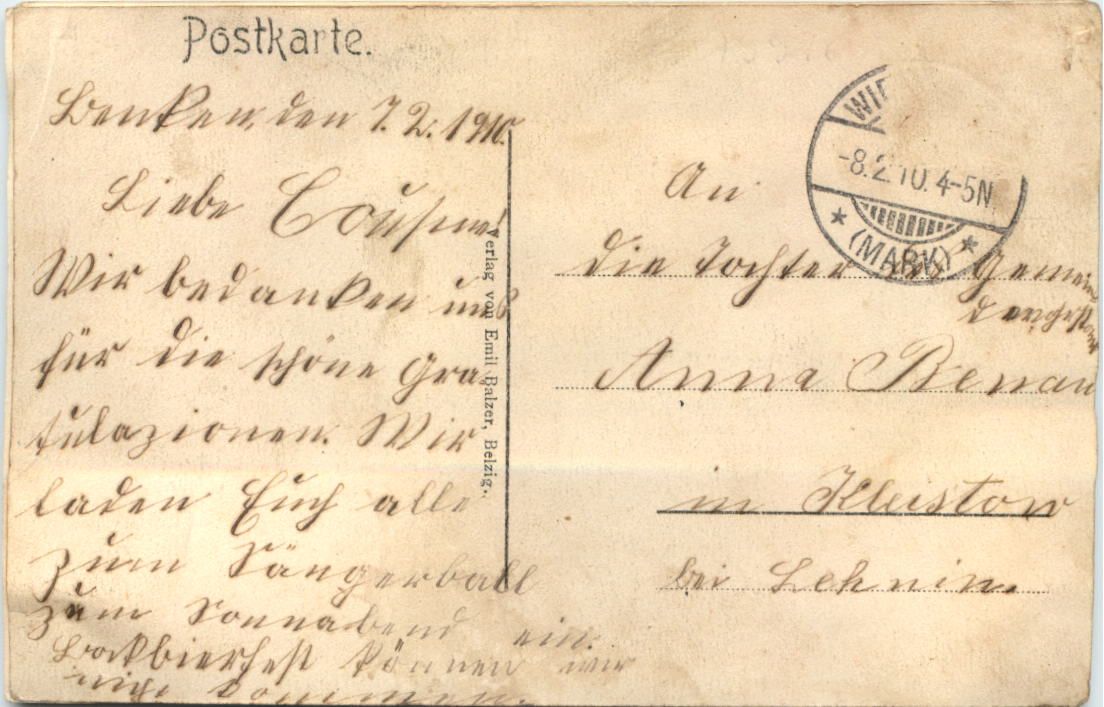 Postkarte.
Benken, den 7.2.1910.
Liebe Cousine!
Wir bedanken uns
für die schöne Gra
tulazionen. Wir
laden Euch alle
zum Sängerball
zum Sonnabend ein.
Bockbierfest können wir
nicht kommen.
Verlag von Emil Balzer, Belzig.
WIE
-8.2.10.4-5N
(MARK)
An
die Tochter des Gemein
Anna Benan
in Kleistow
bei Lehnin.